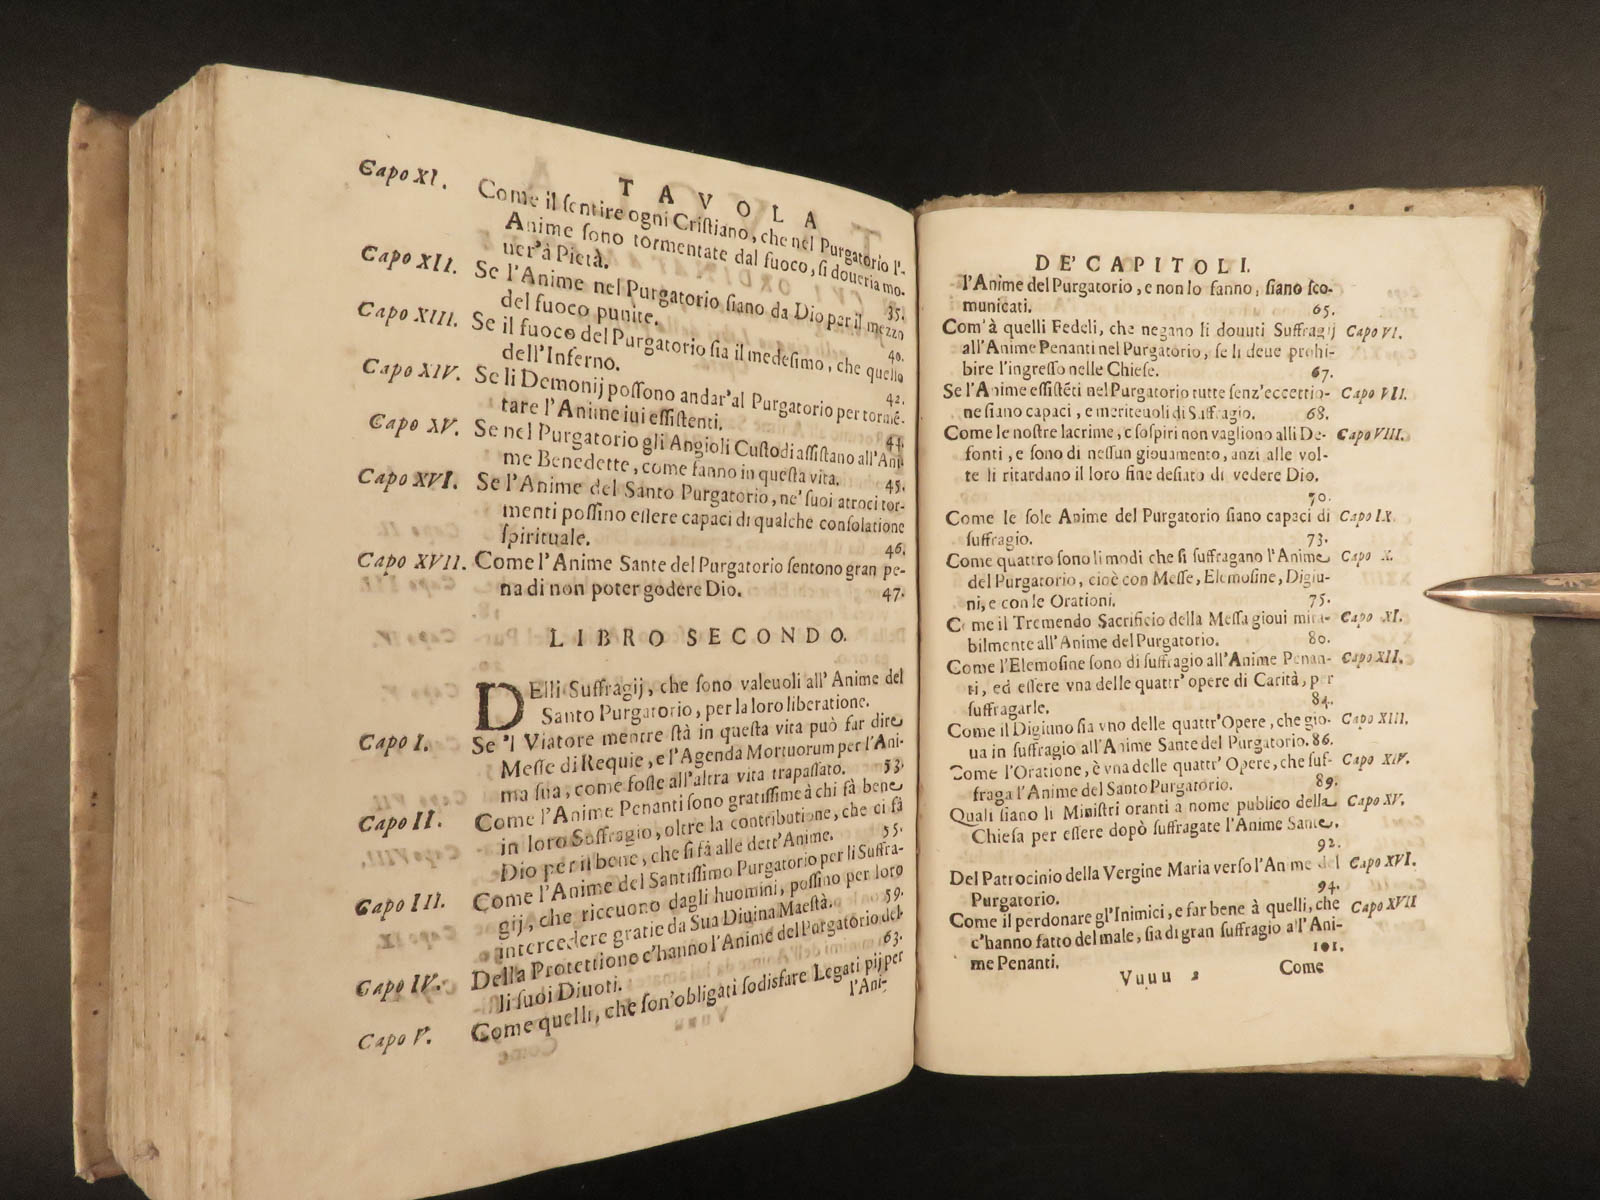 TAVOLA
Capo XI. Come il ſentire ogni Criſtiano, che nel Purgatorio l'-
Anime ſono tormentate dal fuoco, ſi doueria mo-
uer'à Pietà. 35.
Capo XII. Se l'Anime nel Purgatorio ſiano da Dio per il mezzo
del fuoco punite. 40.
Capo XIII. Se il fuoco del Purgatorio ſia il medeſimo, che quello
dell'Inferno. 42.
Capo XIV. Se li Demonij poſſono andar'al Purgatorio per tormē-
tare l'Anime iui eſſiſtenti. 44.
Capo XV. Se nel Purgatorio gli Angioli Cuſtodi aſſiſtano all'Ani-
me Benedette, come fanno in queſta vita. 45.
Capo XVI. Se l'Anime del Santo Purgatorio, ne' ſuoi atroci tor-
menti poſſino eſſere capaci di qualche conſolatione
ſpirituale. 46.
Capo XVII. Come l'Anime Sante del Purgatorio ſentono gran pe-
na di non poter godere Dio. 47.
LIBRO SECONDO.
DElli Suffragij, che ſono valeuoli all'Anime del
Santo Purgatorio, per la loro liberatione.
Capo I. Se 'l Viatore mentre ſtà in queſta vita può far dire
Meſſe di Requie, e l'Agenda Mortuorum per l'Ani-
ma ſua, come foſſe all'altra vita trapaſſato. 53.
Capo II. Come l'Anime Penanti ſono gratiſſime à chi fà bene
in loro Suffragio, oltre la contributione, che ci fà
Dio per il bene, che ſi fà alle dett'Anime. 55.
Capo III. Come l'Anime del Santiſſimo Purgatorio per li Suffra-
gij, che riceuono dagli huomini, poſſino per loro
intercedere gratie da Sua Diuina Maeſtà. 59.
Capo IV. Della Protettione c'hanno l'Anime del Purgatorio del-
li ſuoi Diuoti. 63.
Capo V. Come quelli, che ſon'obligati ſodisfare Legati pij per
l'Ani-
DE' CAPITOLI.
l'Anime del Purgatorio, e non lo fanno, ſiano ſco-
municati. 65.
Com'à quelli Fedeli, che negano li douuti Suffragij Capo VI.
all'Anime Penanti nel Purgatorio, ſe li deue prohi-
bire l'ingreſſo nelle Chieſe. 67.
Se l'Anime eſſiſtēti nel Purgatorio tutte ſenz'eccettio- Capo VII.
ne ſiano capaci, e meriteuoli di Suffragio. 68.
Come le noſtre lacrime, e ſoſpiri non vagliono alli De- Capo VIII.
fonti, e ſono di neſſun giouamento, anzi alle vol-
te li ritardano il loro fine deſiato di vedere Dio.
70.
Come le ſole Anime del Purgatorio ſiano capaci di Capo IX.
ſuffragio. 73.
Come quattro ſono li modi che ſi ſuffragano l'Anime Capo X.
del Purgatorio, cioè con Meſſe, Elemoſine, Digiu-
ni, e con le Orationi. 75.
Come il Tremendo Sacrificio della Meſſa gioui mira- Capo XI.
bilmente all'Anime del Purgatorio. 80.
Come l'Elemoſine ſono di ſuffragio all'Anime Penan- Capo XII.
ti, ed eſſere vna delle quattr'opere di Carità, per
ſuffragarle. 84.
Come il Digiuno ſia vno delle quattr'Opere, che gio- Capo XIII.
ua in ſuffragio all'Anime Sante del Purgatorio. 86.
Come l'Oratione, è vna delle quattr'Opere, che ſuf- Capo XIV.
fraga l'Anime del Santo Purgatorio. 89.
Quali ſiano li Miniſtri oranti a nome publico della Capo XV.
Chieſa per eſſere dopò ſuffragate l'Anime Sante.
92.
Del Patrocinio della Vergine Maria verſo l'Anime del Capo XVI.
Purgatorio. 94.
Come il perdonare gl'Inimici, e far bene à quelli, che Capo XVII
c'hanno fatto del male, ſia di gran ſuffragio all'Ani-
me Penanti. 101.
Vuuu 2 Come